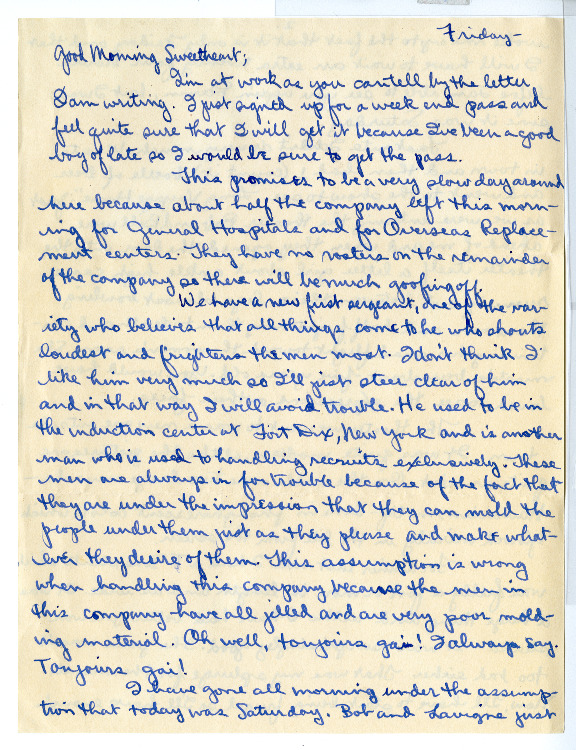 Friday-
Good Morning Sweetheart;
I'm at work as you can tell by the letter
I am writing. I just signed up for a week end pass and
feel quite sure that I will get it because I've been a good
boy of late so I would be sure to get the pass.
This promises to be a very slow day around
here because about half the company left this morn-
ing for General Hospitals and for Overseas Replace-
ment centers. They have no rosters on the remainder
of the company so there will be much goofing off.
We have a new first sergeant, one of the var-
iety who believes that all things come to he who shouts
loudest and frightens the men most. I don't think I
like him very much so I'll just steer clear of him
and in that way I will avoid trouble. He used to be in
the induction center at Fort Dix, New York and is another
man who is used to handling recruits exclusively. These
men are always in for trouble because of the fact that
they are under the impression that they can mold the
people under them just as they please and make what-
ever they desire of them. This assumption is wrong
when handling this company because the men in
this company have all jelled and are very poor mold-
ing material. Oh well, toujours gai! I always say.
Toujours gai!
I have gone all morning under the assump-
tion that today was Saturday. Bob and Lavigne just